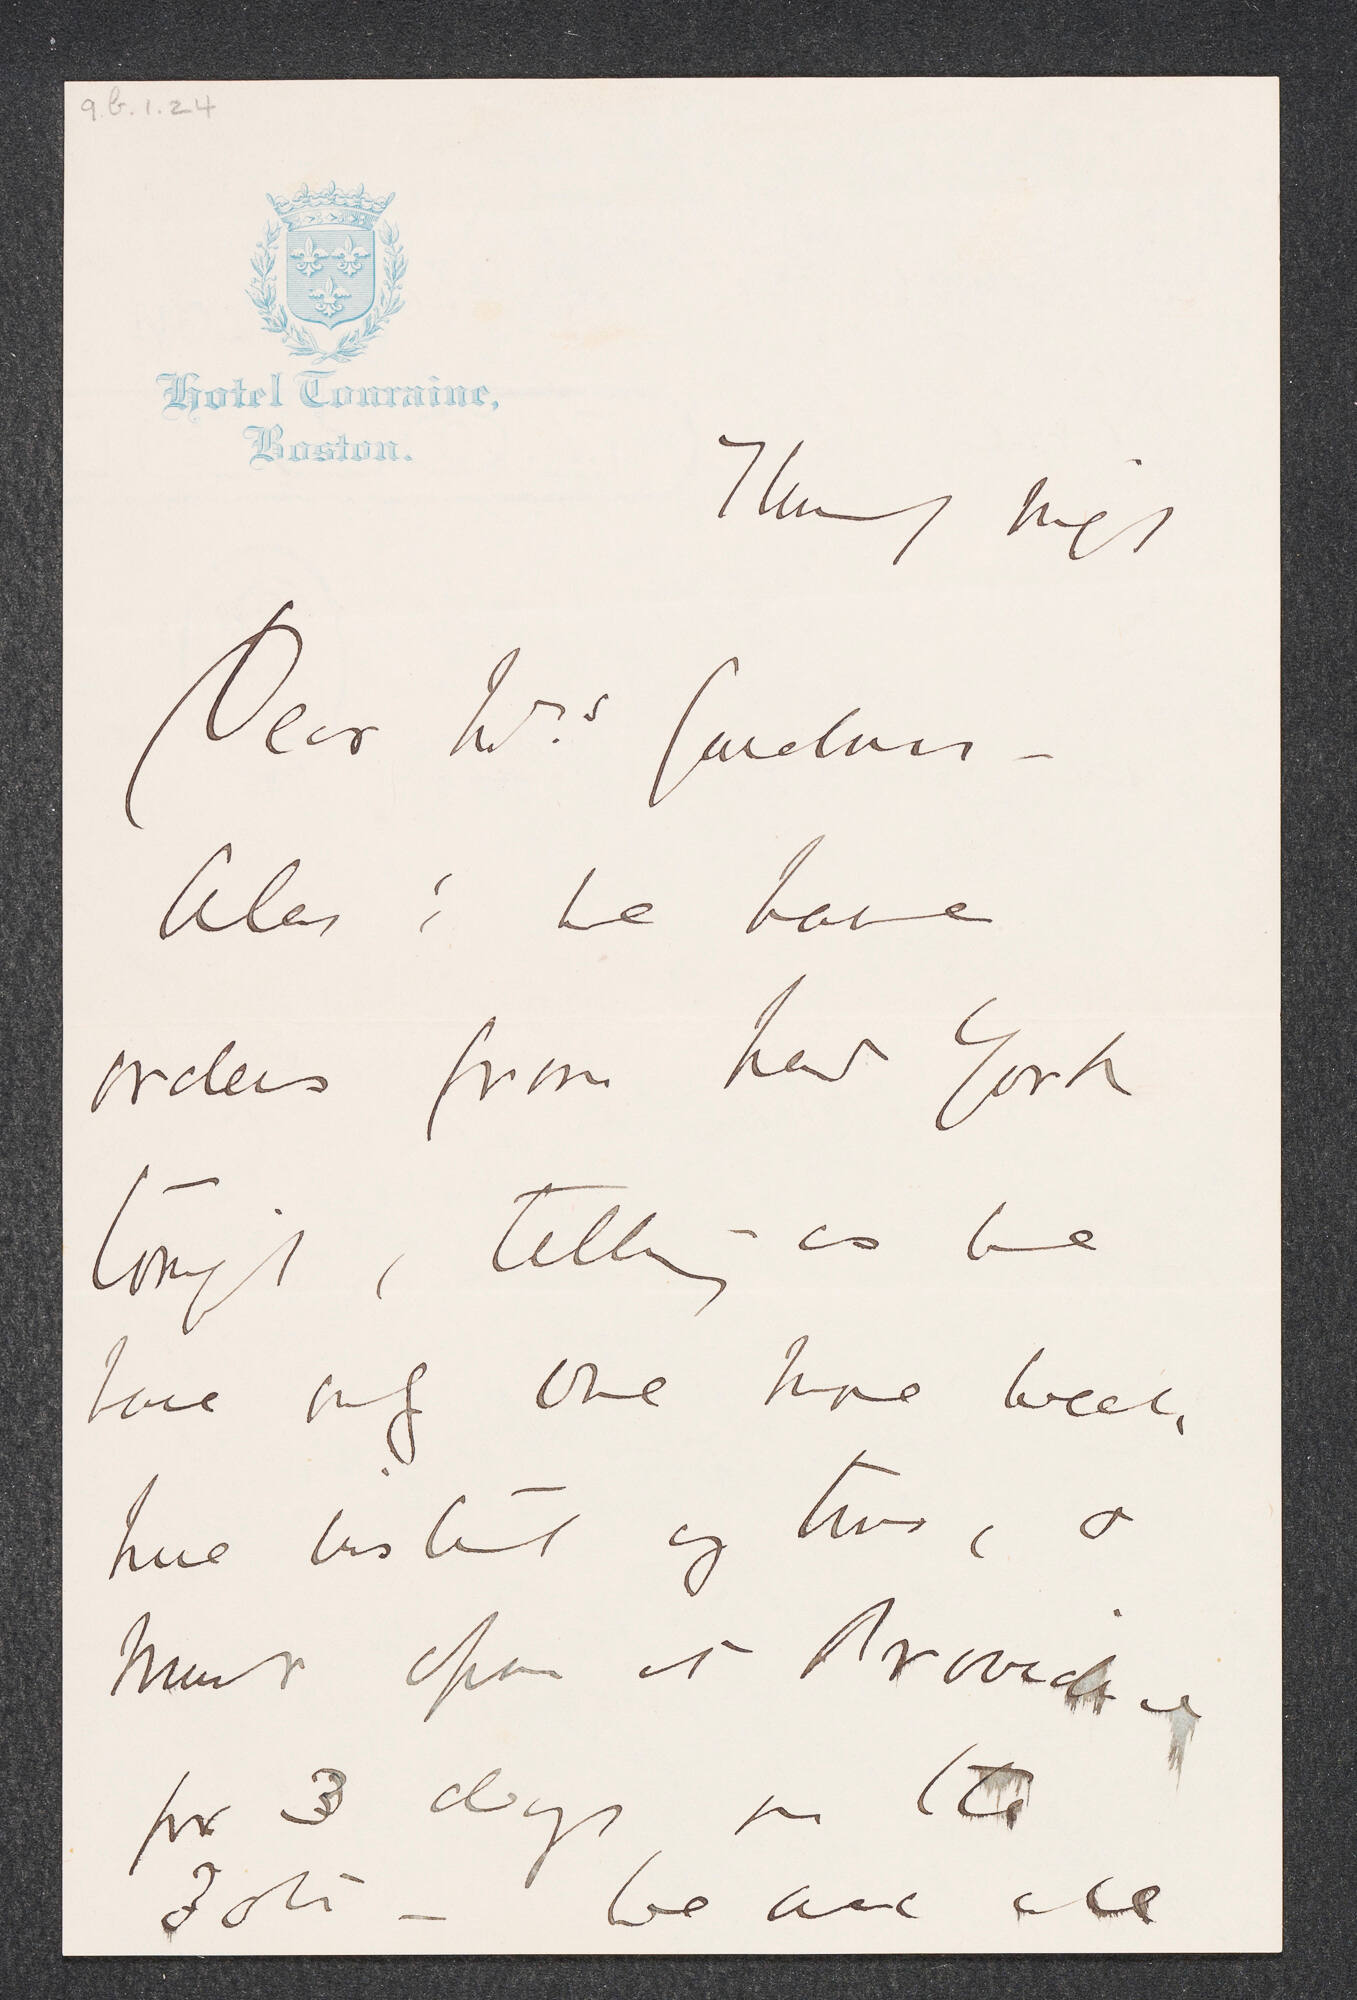 9.b.1.24
Hotel Touraine,
Boston.
Thursday night
Dear Mrs Gardner –
Alas! we have
orders from New York
tonight, telling us we
have only one more week
here instead of two, &
must open at Providence
for 3 days on the
30th – We are all